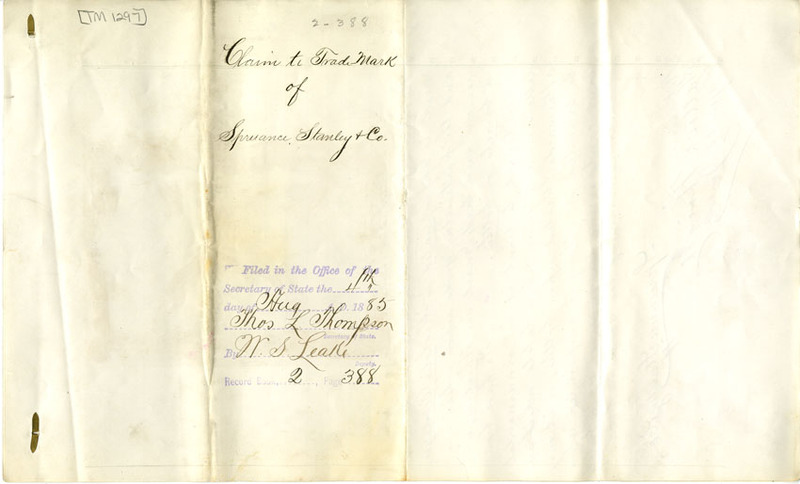 [TM 1297]
2-388
Claim to Trade Mark
of
Spruance, Stanley & Co.
Filed in the Office of the
Secretary of State the 4th
day of Aug A.D. 1885
Thos L Thompson
Secretary of State.
By W. S. Leake
Deputy.
Record Book 2, Page 388